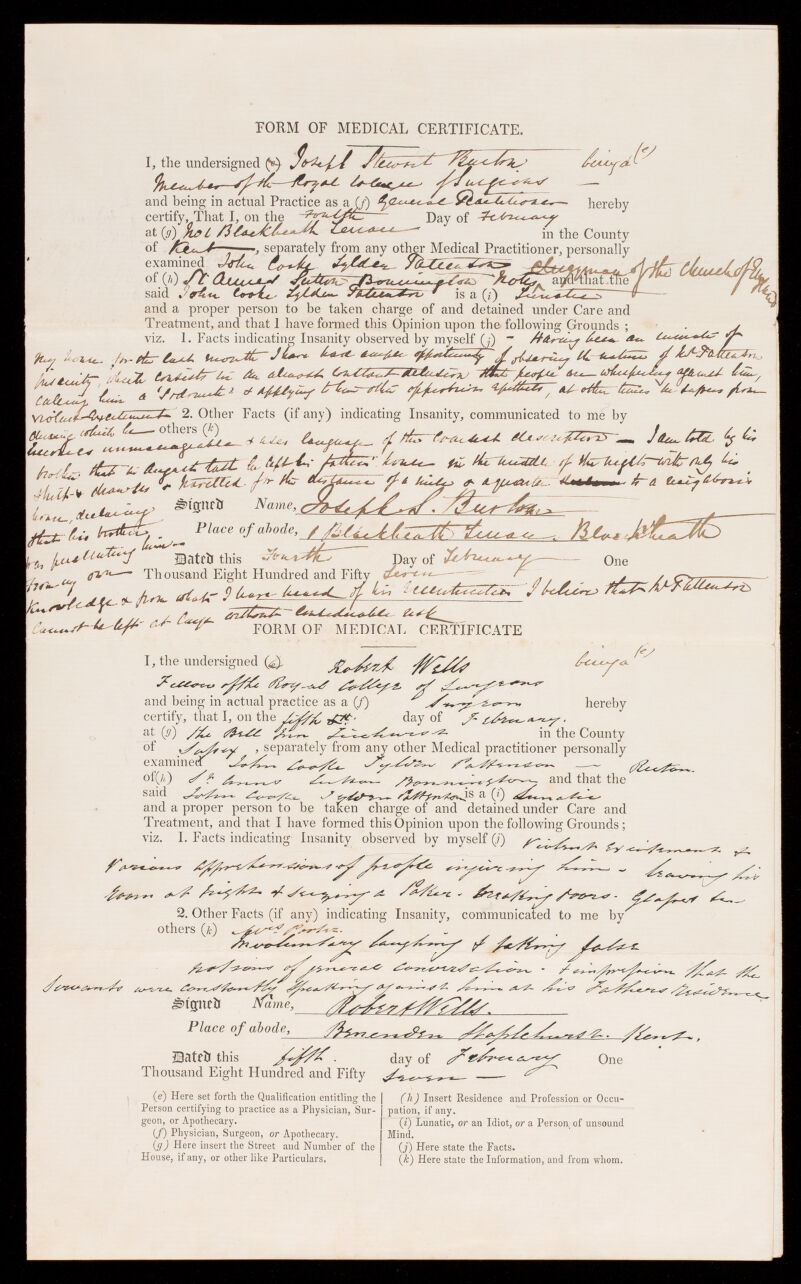 FORM OF MEDICAL CERTIFICATE.
I, the undersigned (e) Joseph Stewart Burton being a (e)
Member of the Royal College of Surgeons
and being in actual Practice as a (f) General Practitioner hereby
certify, That I, on the Fourth Day of February
at (g) No 1 Blackheath Terrace in the County
of Kent, separately from any other Medical Practitioner, personally
examined John Cooke Sylden Pattenson Clergyman of the Church of England
of (h) St Annes Sutton Bonnington Notts and that the
said John Cooke Sylden Pattenson is a (i) Lunatic
and a proper person to be taken charge of and detained under Care and
Treatment, and that I have formed this Opinion upon the following Grounds ;
viz. 1. Facts indicating Insanity observed by myself (j) - Having been an inmate of
my house for the last month I have had ample opportunity of observing the nature of Mr Pattenson
insanity, which consists in an almost constant delusion that people are whispering against him,
calling him a Sodomite & applying to him other opprobrious epithets, at other times he suffers from
violent Excitement 2. Other Facts (if any) indicating Insanity, communicated to me by
during which he others (k)
becomes unmanageable & uses language of the coarsest description — I am told by his
brother that in August last he left his father's house in the middle of the night with only his
shirt & drawers & travelled for the distance of a mile & a quarter to a neighbour's
house, declaring Signed Name, Joseph S. Burton
that his brother Place of abode, 1 Blackheath Terrace, Blackheath
was him Dated this Fourth Day of February One
from my own Thousand Eight Hundred and Fifty Seven
knowledge & from what I have heard of his I believe that Mr Pattenson
cannot be left at large without considerable risk
FORM OF MEDICAL CERTIFICATE
I, the undersigned (e) Robert Wells being a (e)
Fellow of the Royal College of Surgeons
and being in actual practice as a (f) Surgeon hereby
certify, that I, on the fifth day of February.
at (g) the Bell Inn Ticehurst in the County
of Sussex, separately from any other Medical practitioner personally
examined John Cooke Sylden Pattenson — Rector.
of (h) St Anns Sutton Bonnington and that the
said John Cooke Sylden Pattenson is a (i) Lunatic
and a proper person to be taken charge of and detained under Care and
Treatment, and that I have formed this Opinion upon the following Grounds ;
viz. 1. Facts indicating Insanity observed by myself (j) Violent Excitement &
various apprehensions of people injuring him - leaving his
room at night & seizing a Poker - breaking doors.
2. Other Facts (if any) indicating Insanity, communicated to me by
others (k)
Involuntary laughing & taking false
notions of general conversation - & impression that the
Servants were constantly speaking against him at his Fathers residence
Signed Name, Robert Wells.
Place of abode, Benenden Staplehurst. Kent.
Dated this fifth. day of February One
Thousand Eight Hundred and Fifty Seven —
(e) Here set forth the Qualification entitling the
Person certifying to practice as a Physician, Sur-
geon, or Apothecary.
(f) Physician, Surgeon, or Apothecary.
(g) Here insert the Street and Number of the
House, if any, or other like Particulars.
(h) Insert Residence and Profession or Occu-
pation, if any.
(i) Lunatic, or an Idiot, or a Person, of unsound
Mind.
(j) Here state the Facts.
(k) Here state the Information, and from whom.